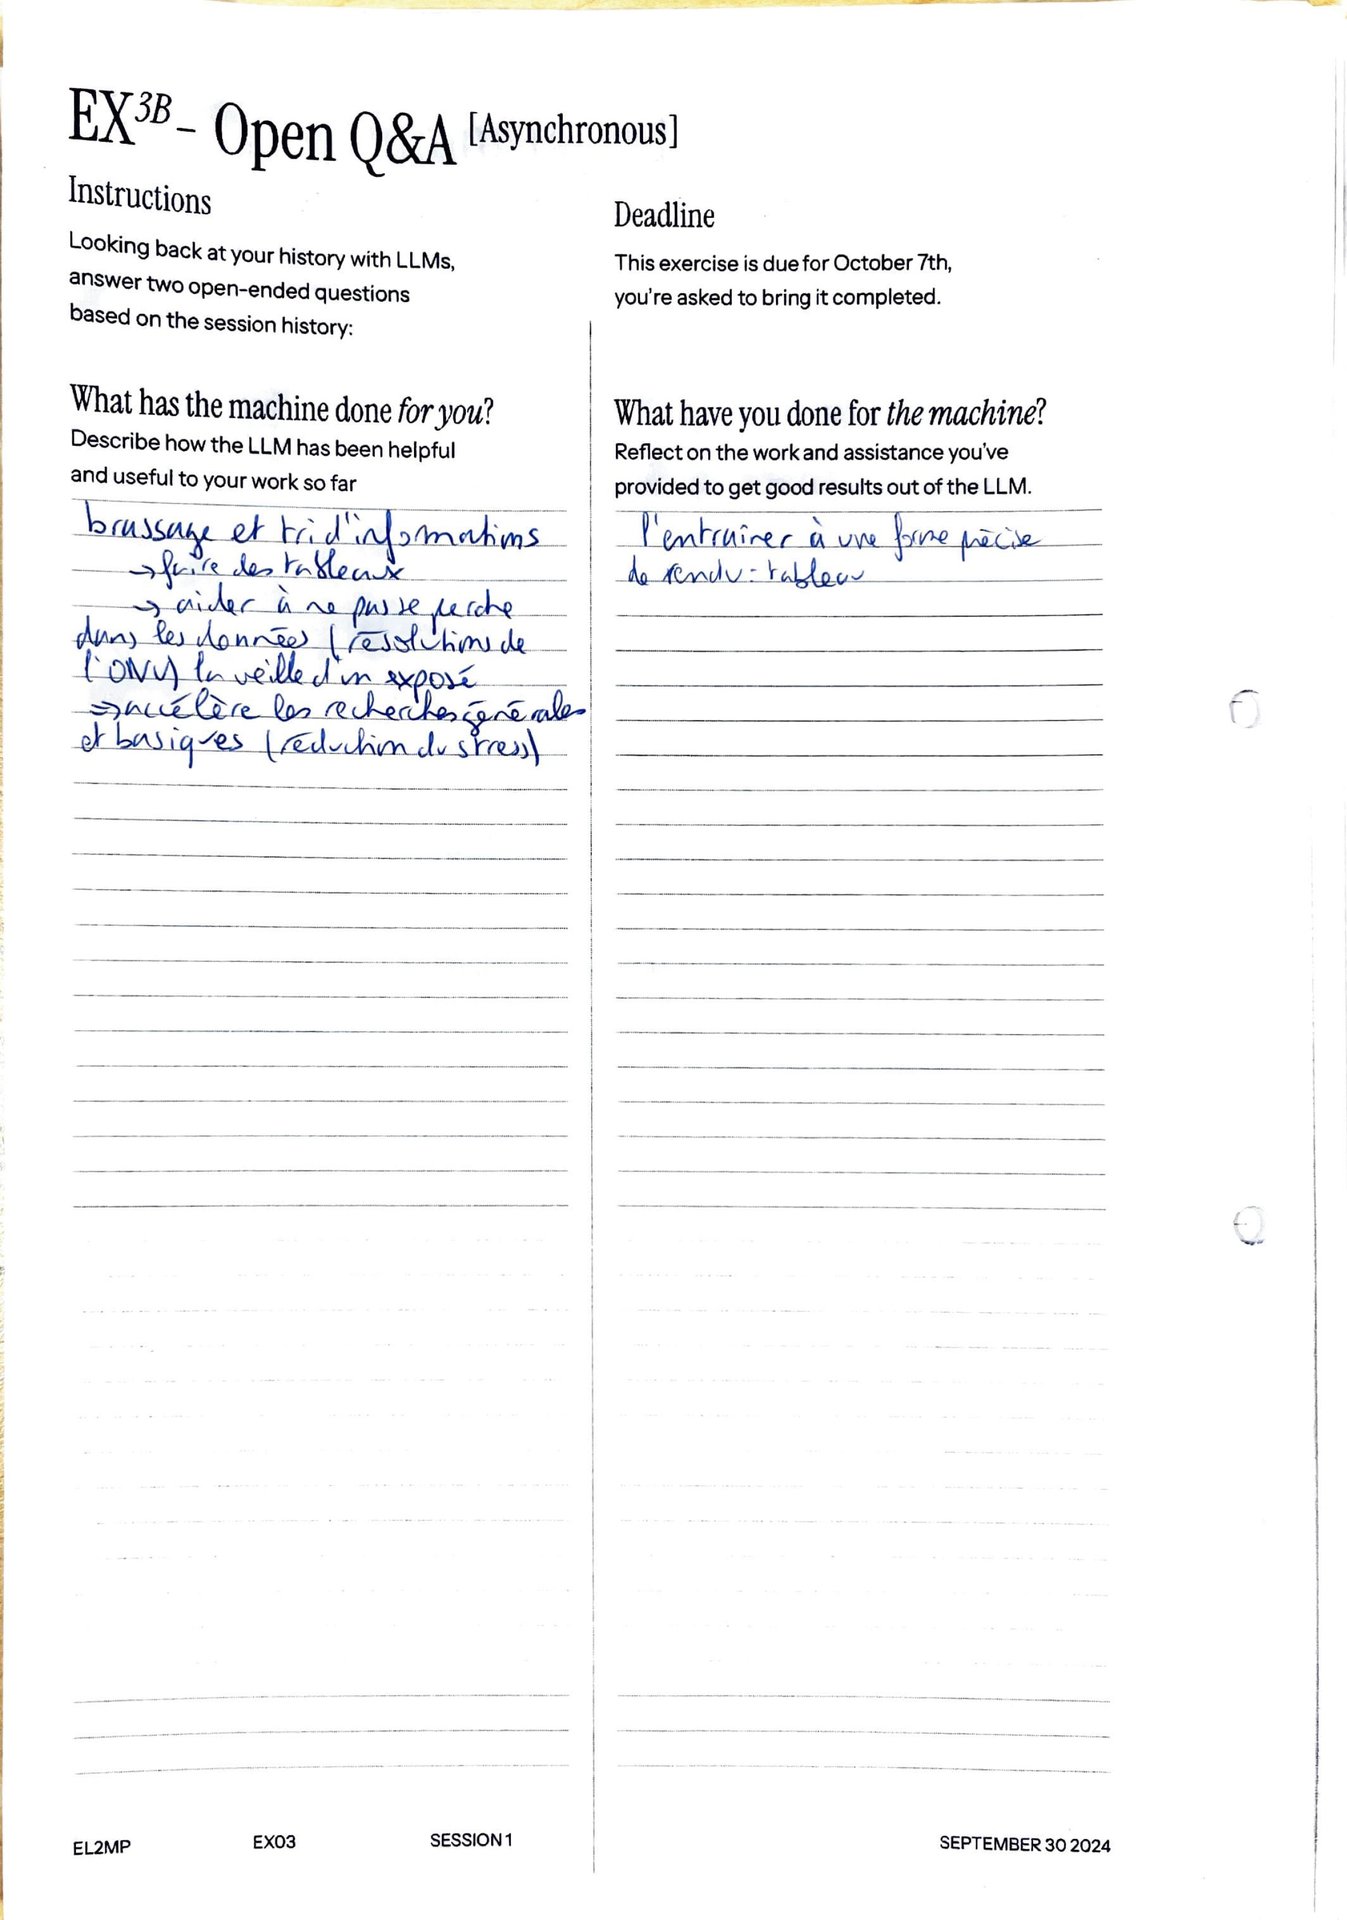 EX3B – Open Q&A [Asynchronous]
Instructions
Looking back at your history with LLMs,
answer two open-ended questions
based on the session history:
Deadline
This exercise is due for October 7th,
you're asked to bring it completed.
What has the machine done for you?
Describe how the LLM has been helpful
and useful to your work so far
brassage et tri d'informations
→ faire des tableaux
→ aider à ne pas se perdre
dans les données (résolutions de
l'ONU) la veille d'un exposé
⇒ accélère les recherches générales
et basiques (réduction du stress)
What have you done for the machine?
Reflect on the work and assistance you've
provided to get good results out of the LLM.
l'entraîner à une forme précise
de rendu : tableau
EL2MP
EX03
SESSION 1
SEPTEMBER 30 2024